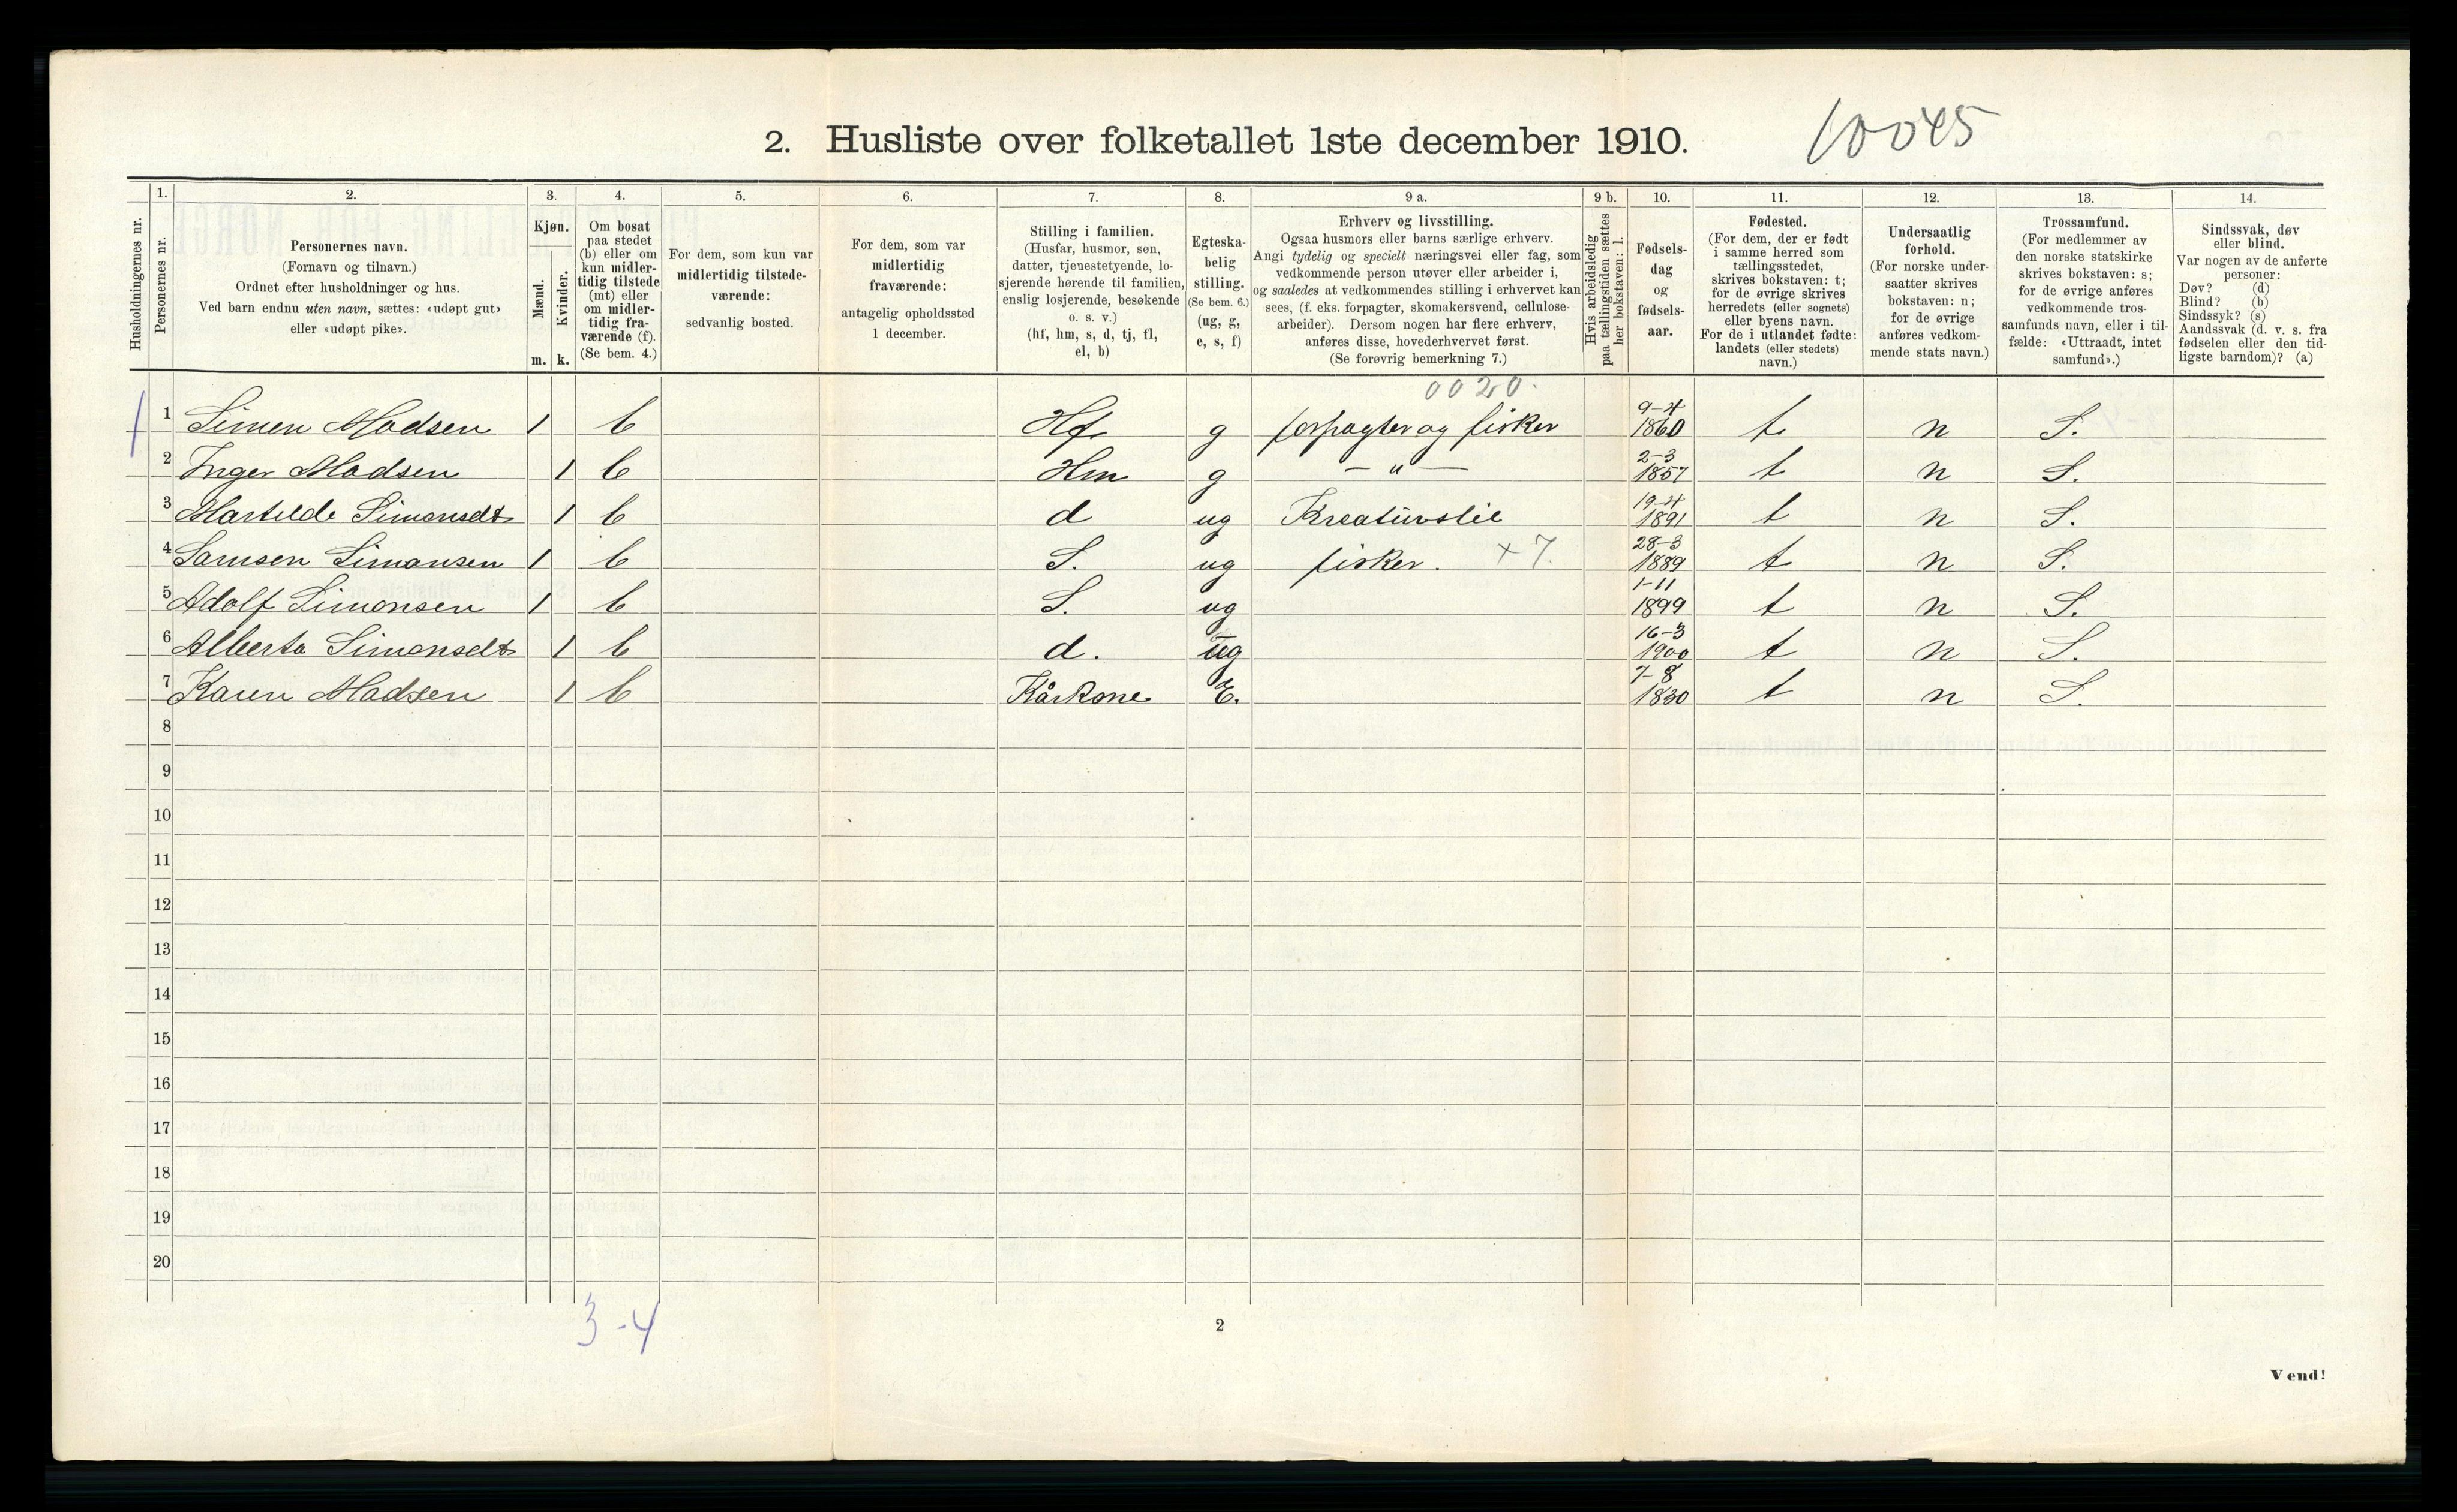 2. Husliste over folketallet 1ste december 1910. 10045
1. 2. 3. 4. 5. 6. 7. 8. 9 a. 9 b. 10. 11. 12. 13. 14.
Husholdningernes nr.
Personernes nr.
Personernes navn.
(Fornavn og tilnavn.)
Ordnet efter husholdninger og hus.
Ved barn endnu uten navn, sættes: «udøpt gut»
eller «udøpt pike».
Kjøn.
Mænd.
Kvinder.
m. k.
Om bosat
paa stedet
(b) eller om
kun midler-
tidig tilstede
(mt) eller
om midler-
tidig fra-
værende (f).
(Se bem. 4.)
For dem, som kun var
midlertidig tilstede-
værende:
sedvanlig bosted.
For dem, som var
midlertidig
fraværende:
antagelig opholdssted
1 december.
Stilling i familien.
(Husfar, husmor, søn,
datter, tjenestetyende, lo-
sjerende hørende til familien,
enslig losjerende, besøkende
o. s. v.)
(hf, hm, s, d, tj, fl,
el, b)
Egteska-
belig
stilling.
(Se bem. 6.)
(ug, g,
e, s, f)
Erhverv og livsstilling.
Ogsaa husmors eller barns særlige erhverv.
Angi tydelig og specielt næringsvei eller fag, som
vedkommende person utøver eller arbeider i,
og saaledes at vedkommendes stilling i erhvervet kan
sees, (f. eks. forpagter, skomakersvend, cellulose-
arbeider). Dersom nogen har flere erhverv,
anføres disse, hovederhvervet først.
(Se forøvrig bemerkning 7.)
Hvis arbeidsledig
paa tællingstiden sættes
her bokstaven: l.
Fødsels-
dag
og
fødsels-
aar.
Fødested.
(For dem, der er født
i samme herred som
tællingsstedet,
skrives bokstaven: t;
for de øvrige skrives
herredets (eller sognets)
eller byens navn.
For de i utlandet fødte:
landets (eller stedets)
navn.)
Undersaatlig
forhold.
(For norske under-
saatter skrives
bokstaven: n;
for de øvrige
anføres vedkom-
mende stats navn.)
Trossamfund.
(For medlemmer av
den norske statskirke
skrives bokstaven: s;
for de øvrige anføres
vedkommende tros-
samfunds navn, eller i til-
fælde: «Uttraadt, intet
samfund».)
Sindssvak, døv
eller blind.
Var nogen av de anførte
personer:
Døv? (d)
Blind? (b)
Sindssyk? (s)
Aandssvak (d. v. s. fra
fødselen eller den tid-
ligste barndom)? (a)
0020.
1 1 Simen Madsen 1 b Hf g forpagter og fisker 9-4 1860 t n S.
2 Inger Madsen 1 b Hm g — " — 2-3 1857 t n S.
3 Martilde Simonsdt 1 b d ug Kreaturstel 19-4 1891 t n S.
4 Samsen Simonsen 1 b S. ug fisker. +7. 28-3 1889 t n S.
5 Adolf Simonsen 1 b S. ug 1-11 1899 t n S.
6 Alberta Simonsdt 1 b d. ug 16-3 1900 t n S.
7 Karen Madsen 1 b Kårkone E. 7-8 1830 t n S.
8
9
10
11
12
13
14
15
16
17
18
19
20
3-4
2
Vend!